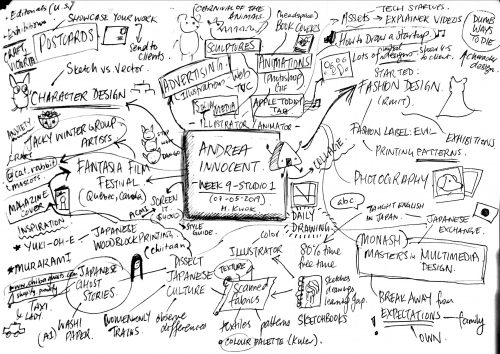 ANDREA
INNOCENT.
WEEK 9 - STUDIO 1
(07-05-2019)
H. KWOK
POSTCARDS
SHOWCASE YOUR WORK
Send to
clients.
Sketch vs. Vector.
CHARACTER DESIGN
SCULPTURES
CARNIVAL OF THE
ANIMALS.
ADVERTISING
Illustrations
Web
TVC
SOCIAL MEDIA
ANIMATIONS
Photoshop
GIF
APPLE TODAY
TAB
BOOK COVERS
ILLUSTRATOR
ANIMATOR
TECH STARTUPS.
ASSETS → EXPLAINER VIDEOS
How to Draw a Startup
DUMB
WAYS
TO DIE
character
design
STARTED:
FASHION DESIGN.
(RMIT).
FASHION LABEL: EVIL
EXHIBITIONS
PRINTING PATTERNS.
COLLAGE
PHOTOGRAPHY
abc
TAUGHT ENGLISH
IN JAPAN.
JAPANESE
EXCHANGE.
MONASH
MASTERS IN MULTIMEDIA
DESIGN.
BREAK AWAY from
EXPECTATIONS
family
OWN.
DAILY
DRAWING
80% time
free time
Sketches
drawings
SKETCHBOOKS
JACKY WINTER GROUP
ARTISTS
@cat.rabbit
FANTASIA FILM
FESTIVAL
(Quebec, Canada)
MAGAZINE
COVER
SCREEN
INSPIRATION
* YUKI-OH-E
* MURAKAMI
JAPANESE
WOODBLOCK PRINTING
STYLE
GUIDE
JAPANESE
GHOST
STORIES.
TAXI
& LADY.
WASHI
PAPER.
DISSECT
JAPANESE
CULTURE
WOMEN ONLY
TRAINS.
observe
differences
color
ILLUSTRATOR
TEXTURE
Scanned
fabrics
textiles patterns
COLOUR PALETTE (Kuler).